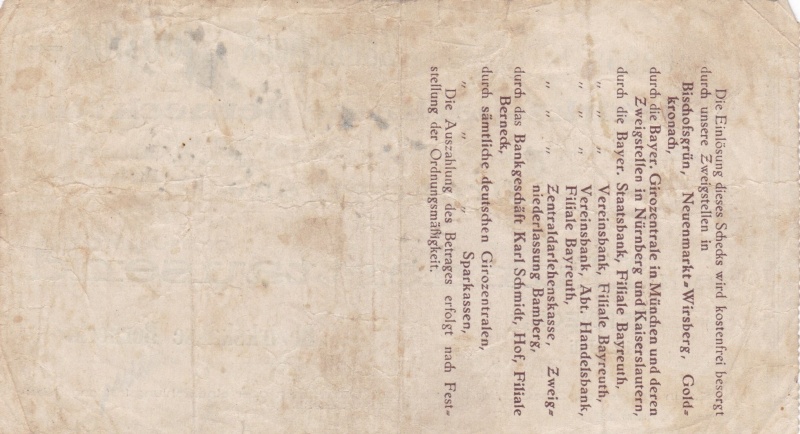 Die Einlösung dieses Schecks wird kostenfrei besorgt
durch unsere Zweigstellen in
Bischofsgrün, Neuenmarkt=Wirsberg, Gold=
kronach,
durch die Bayer. Girozentrale in München und deren
Zweigstellen in Nürnberg und Kaiserslautern,
durch die Bayer. Staatsbank, Filiale Bayreuth,
„ „ „ Vereinsbank, Filiale Bayreuth,
„ „ „ Vereinsbank, Abt. Handelsbank,
Filiale Bayreuth,
„ „ „ Zentraldarlehenskasse, Zweig=
niederlassung Bamberg,
durch das Bankgeschäft Karl Schmidt, Hof, Filiale
Berneck,
durch sämtliche deutschen Girozentralen,
„ „ „ Sparkassen,
Die Auszahlung des Betrages erfolgt nach Fest=
stellung der Ordnungsmäßigkeit.